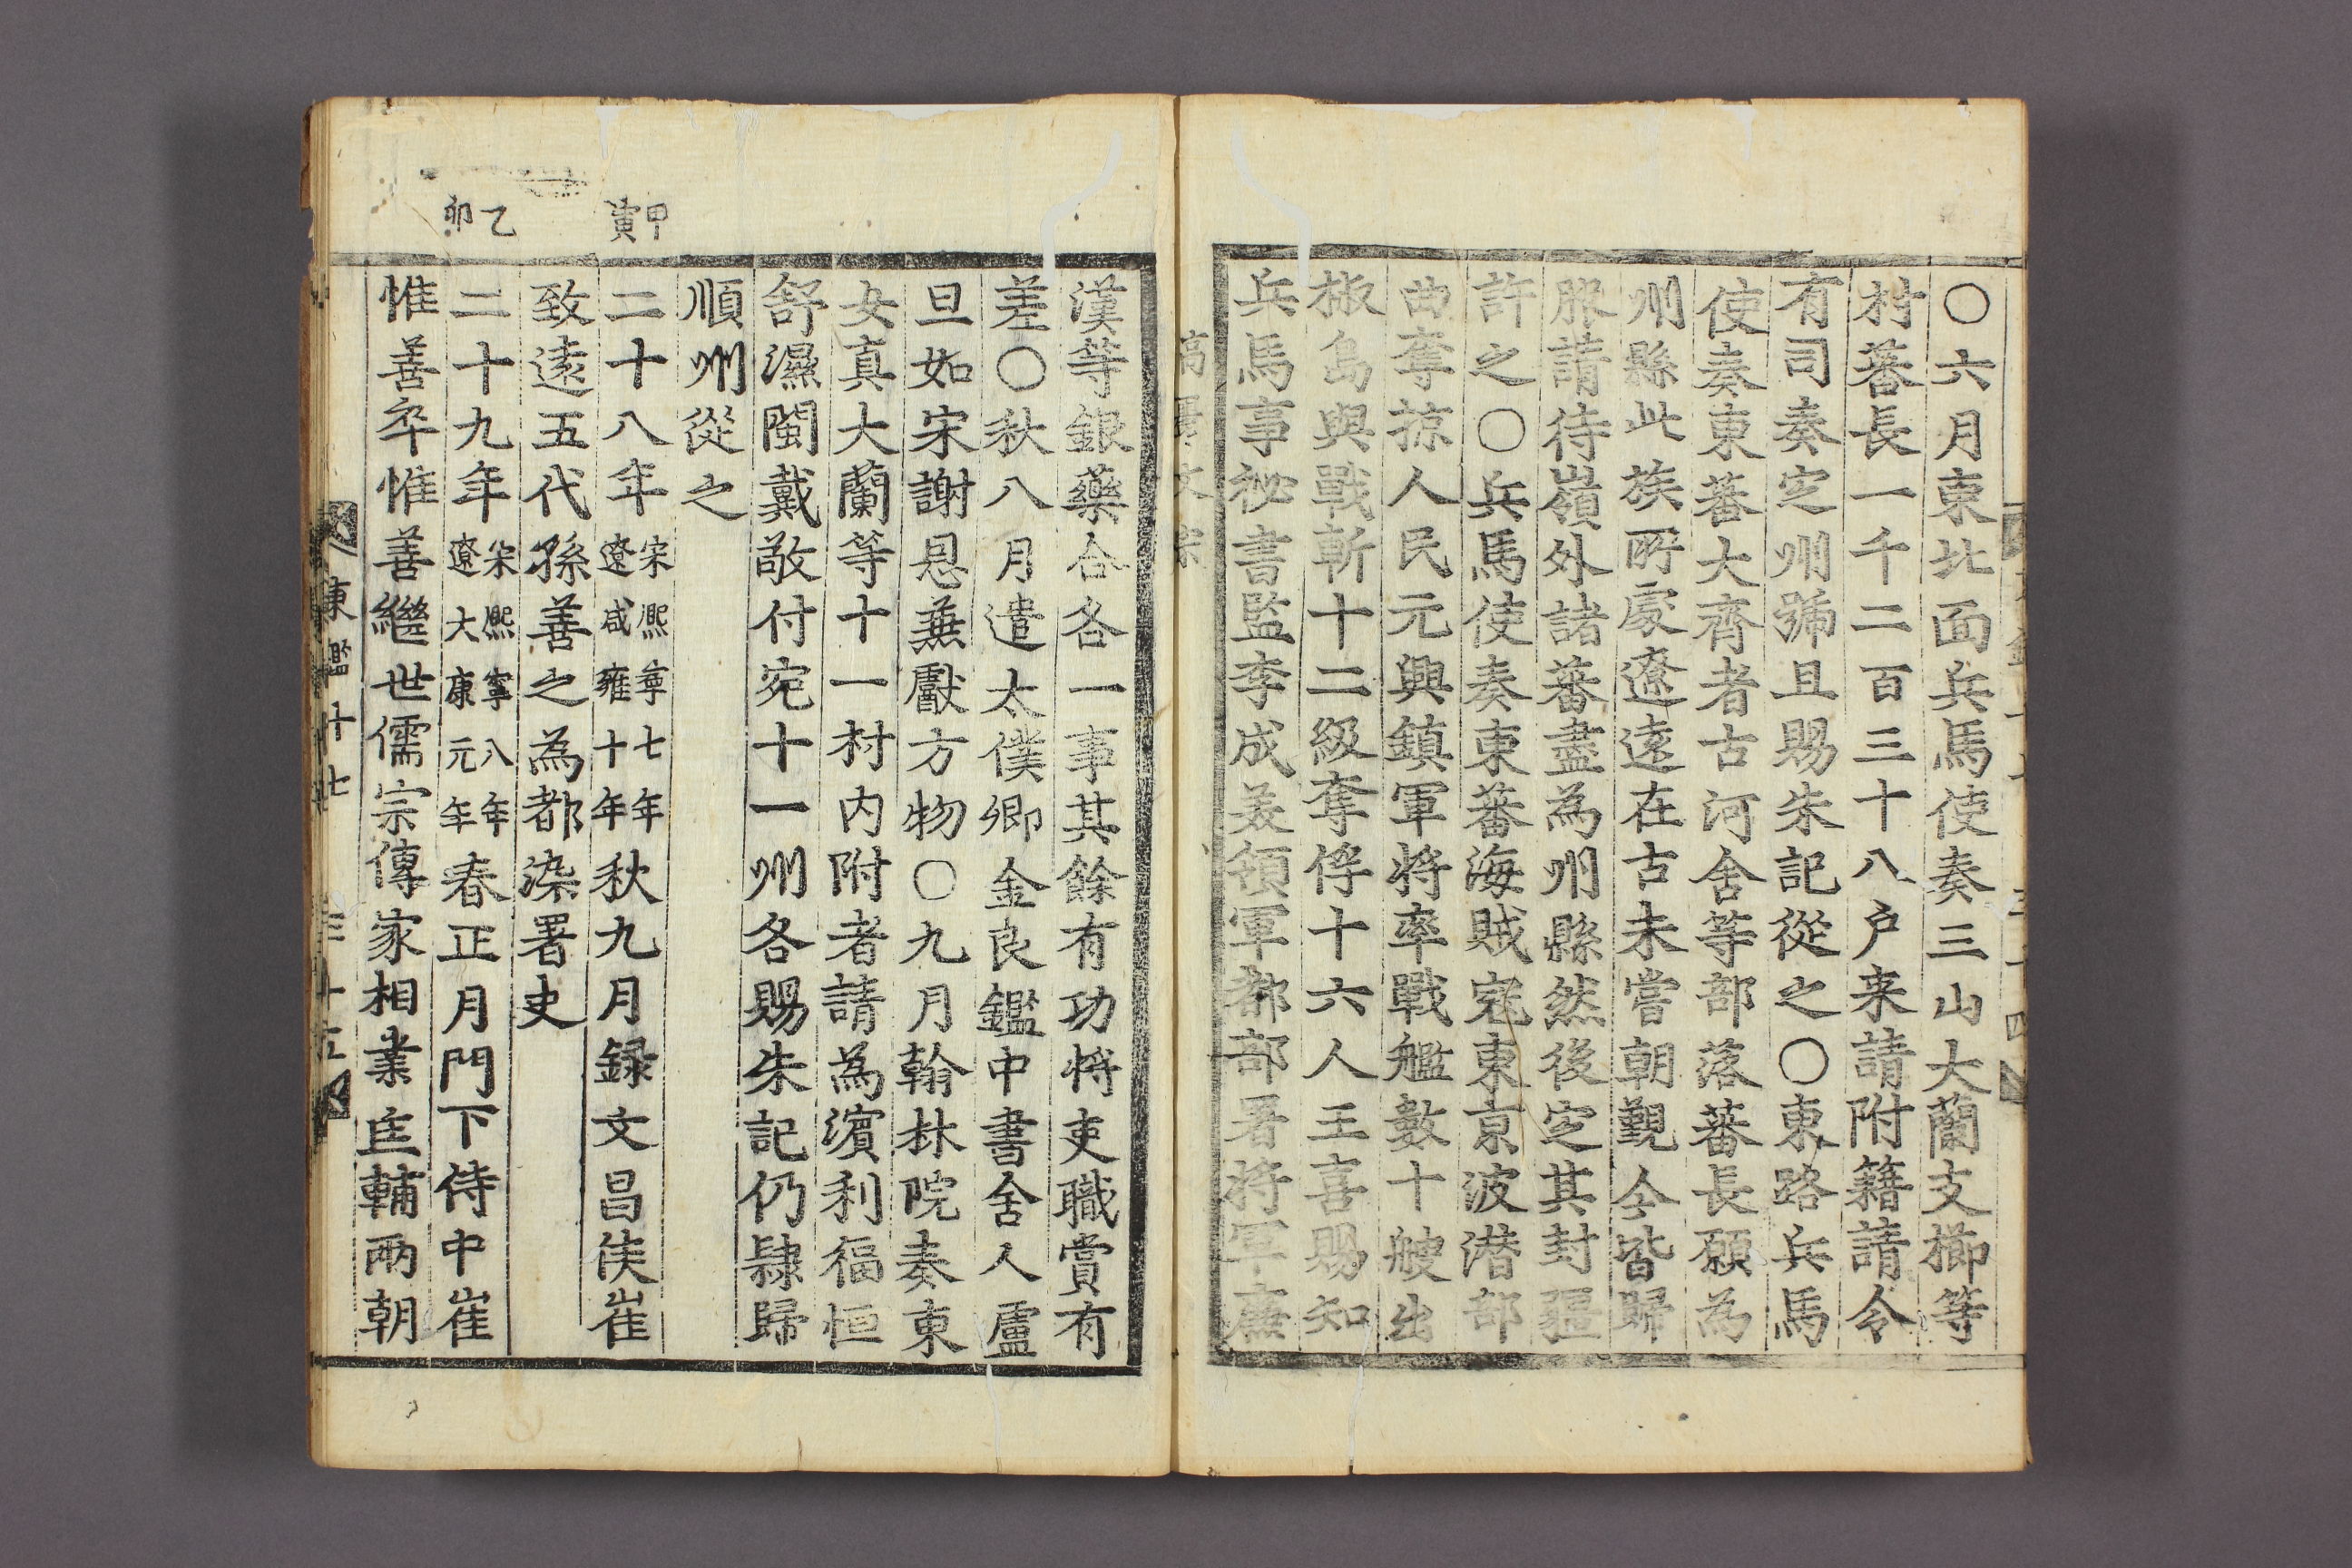 〇六月東北面兵馬使奏三山大蘭支櫛等
村蕃長一千二百三十八戶来請附籍請令
有司奏定州號且賜朱記從之〇東路兵馬
使奏東蕃大齊者古河舍等部落蕃長願為
州縣此族所處遼遠在古未嘗朝覲今皆歸
服請待嶺外諸蕃盡為州縣然後定其封疆
許之〇兵馬使奏東蕃海賊寇東京波潜部
曲奪掠人民元興鎮軍將率戰艦數十艘出
椒島與戰斬十二級奪俘十六人王喜賜知
兵馬事祕書監李成美領軍都部署將軍廉
漢等銀藥合各一事其餘有功將吏職賞有
差〇秋八月遣太僕卿金良鑑中書舍人盧
旦如宋謝恩兼獻方物〇九月翰林院奏東
女真大蘭等十一村內附者請為濱利福恒
舒濕閩戴敬付宛十一州各賜朱記仍隷歸
順州從之
甲寅
二十八年宋熙寧七年遼咸雍十年秋九月録文昌侯崔
致遠五代孫善之為都染署史
乙卯
二十九年宋熙寧八年遼大康元年春正月門下侍中崔
惟善卒惟善繼世儒宗傳家相業匡輔兩朝
東鑑十七 三十五